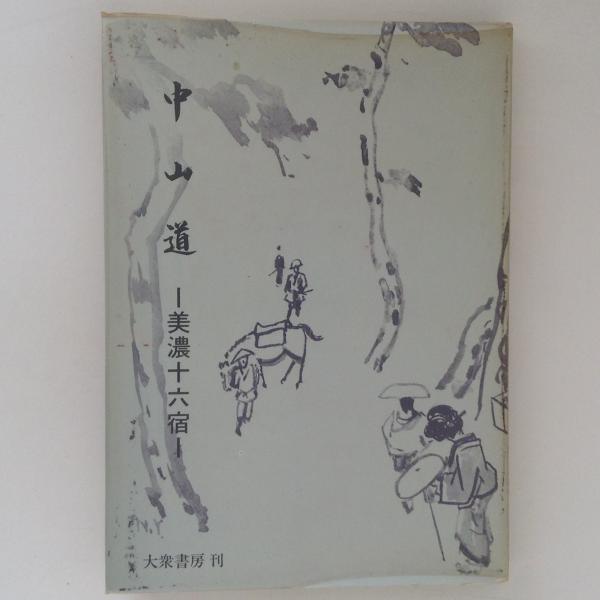 中山道
ー美濃十六宿ー
大衆書房 刊